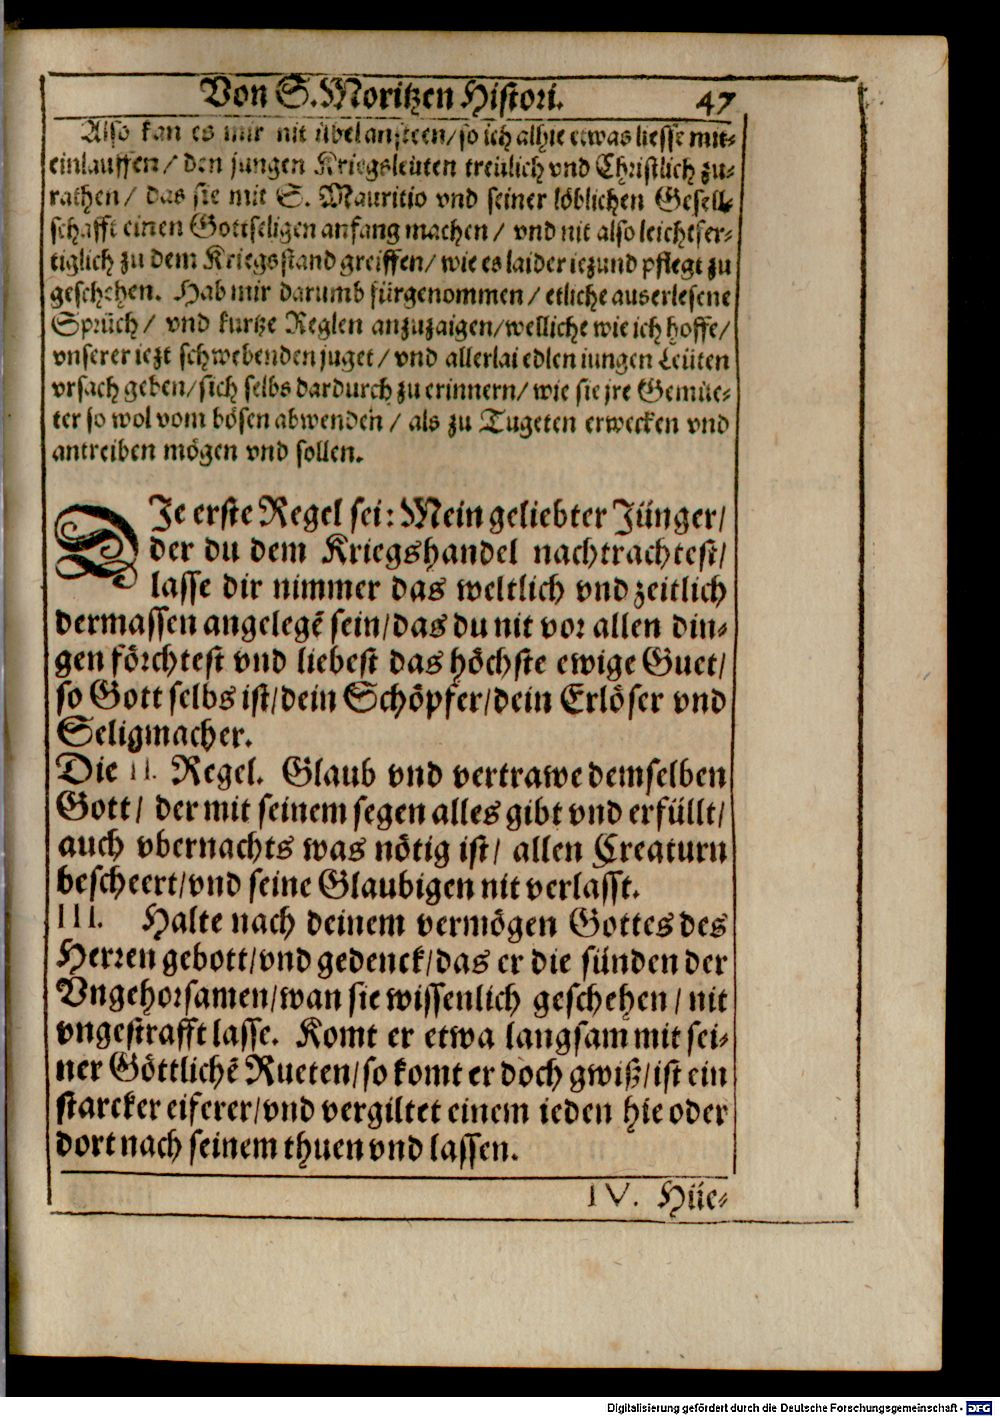 Von S. Moritzen Histori. 47
Also kan es mir nit übel ansteen/ so ich alhie etwas liesse mit-
einlauffen/ den jungen Kriegsleüten treülich vnd Christlich zu-
rathen/ das sie mit S. Mauritio vnd seiner löblichen Gesell-
schafft einen Gottseligen anfang machen/ vnd nit also leichtfer-
tiglich zu dem Kriegsstand greiffen/ wie es laider iezund pflegt zu
geschehen. Hab mir darumb fürgenommen/ etliche auserlesene
Sprüch/ vnd kurtze Reglen anzuzaigen/ welliche wie ich hoffe/
vnserer iezt schwebenden juget/ vnd allerlai edlen iungen Leüten
vrsach geben/ sich selbs dardurch zu erinnern/ wie sie jre Gemüe-
ter so wol vom bösen abwenden/ als zu Tugeten erwecken vnd
antreiben mögen vnd sollen.
DJe erste Regel sei: Mein geliebter Jünger/
der du dem Kriegshandel nachtrachtest/
lasse dir nimmer das weltlich vnd zeitlich
dermassen angelegē sein/ das du nit vor allen din-
gen förchtest vnd liebest das höchste ewige Guet/
so Gott selbs ist/ dein Schöpfer/ dein Erlöser vnd
Seligmacher.
Die II. Regel. Glaub vnd vertrawe demselben
Gott/ der mit seinem segen alles gibt vnd erfüllt/
auch vbernachts was nötig ist/ allen Creaturn
bescheert/ vnd seine Glaubigen nit verlasst.
III. Halte nach deinem vermögen Gottes des
Herren gebott/ vnd gedenck/ das er die sünden der
Vngehorsamen/ wan sie wissenlich geschehen/ nit
vngestrafft lasse. Komt er etwa langsam mit sei-
ner Göttlichē Rueten/ so komt er doch gwiß/ ist ein
starcker eiferer/ vnd vergiltet einem ieden hie oder
dort nach seinem thuen vnd lassen.
IV. Hüe-
Digitalisierung gefördert durch die Deutsche Forschungsgemeinschaft - DFG